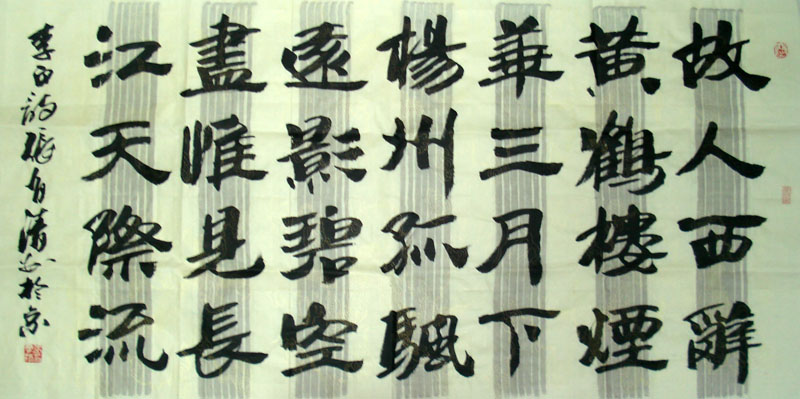 故人西辭
黄鶴樓煙
華三月下
楊州孤颿
遠影碧空
盡惟見長
江天際流
李白詩張清书於京